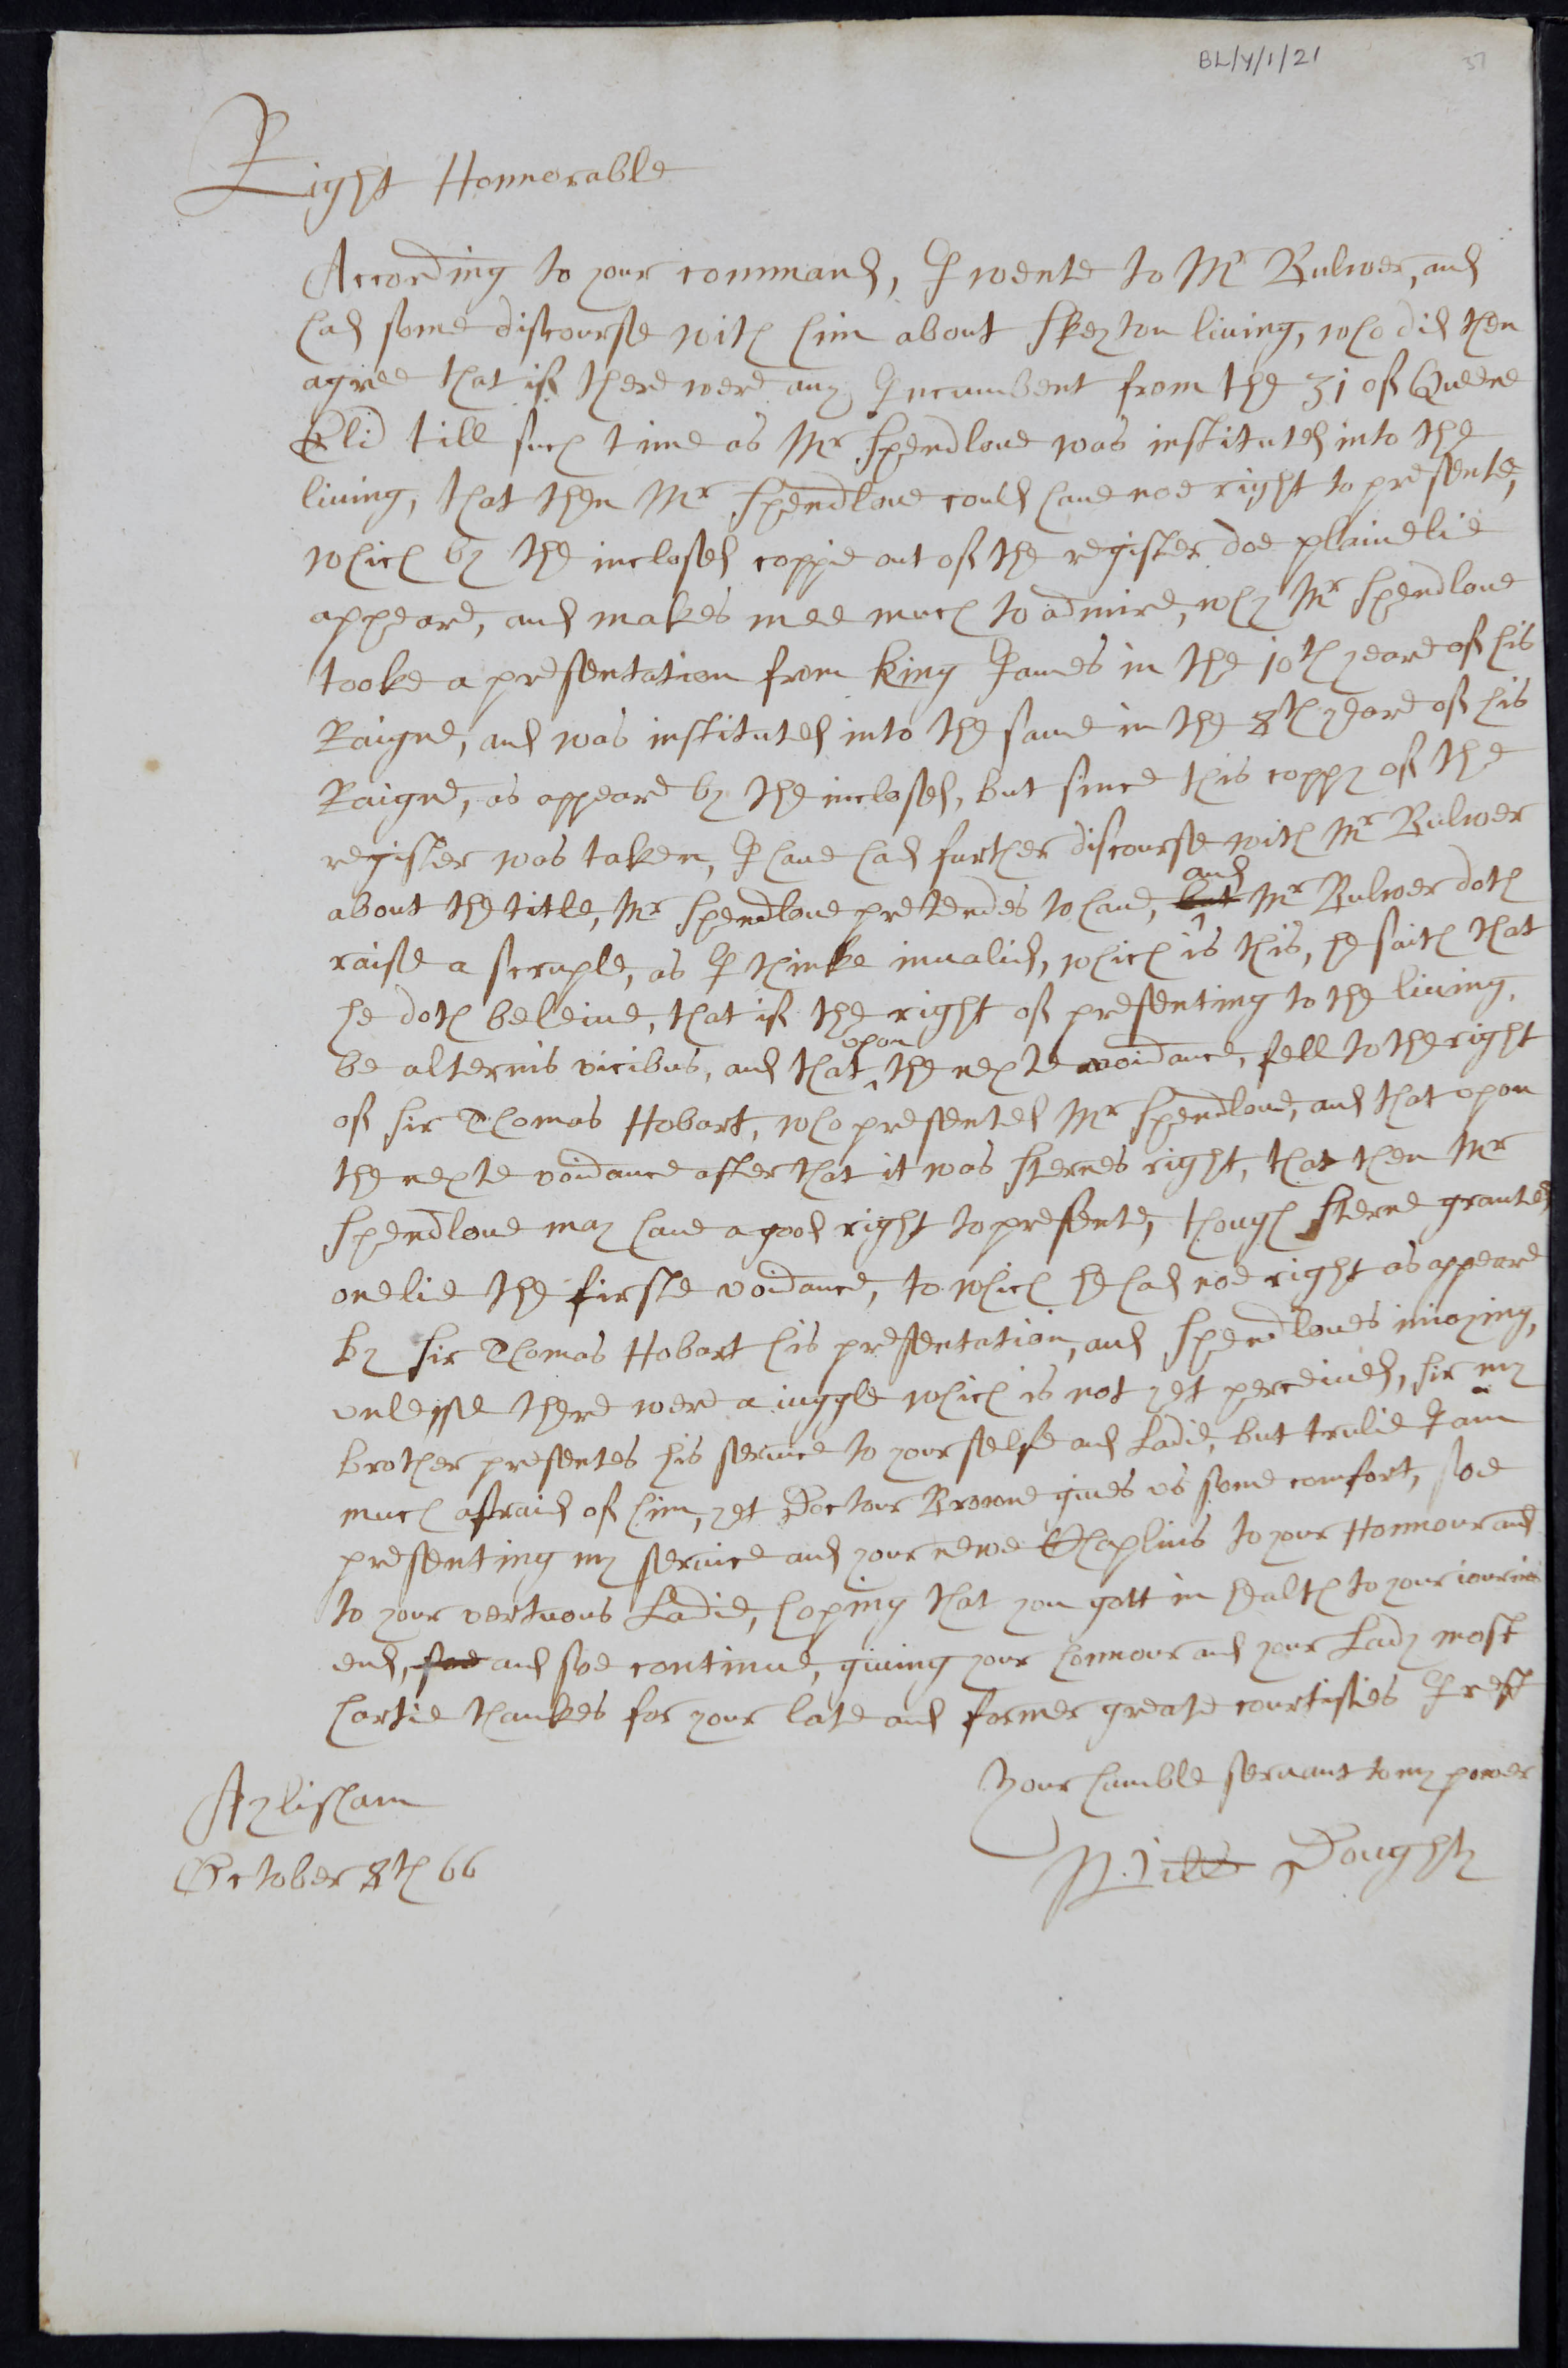 BL/Y/1/21
37
Right Honnorable
According to your command, I wente to Mr Bulwer, and
had some discourse with him about Skeyton liuing, who did then
agree that if there were any Incumbent from the 31 of Queene
Eliz till such time as Mr Spendloue was instituted into the
liuing, that then Mr Spendloue could haue noe right to presente,
which by the inclosed coppie out of the register doe plainelie
appeare, and makes mee much to admire, why Mr Spendloue
tooke a presentation from King Iames in the 10th yeare of his
Raigne, and was instituted into the same in the 8th yeare of his
Raigne, as appeare by the inclosed, but since this coppy of the
register was taken, I haue had further discourse with Mr Bulwer
about the title, Mr Spendloue pretendes to haue, but and Mr Bulwer doth
raise a scruple, as I thinke inualid, which is this, he saith that
he doth beleiue, that if the right of presenting to the liuing,
be alternis vicibus, and that upon the nexte avoidance, fell to the right
of Sir Thomas Hobart, who presented Mr Spendloue, and that opon
the nexte voidance after that it was Sternes right, that then Mr
Spendloue may haue a good right to presente, though Sterne granted
onelie the firste voidance, to which he had noe right as appeare
by Sir Thomas Hobart his presentation, and Spendloues inioying,
vnlesse there were a iuggle which is not yet perceiued, Sir my
brother presentes his seruice to your selfe and Ladie, but trulie I am
much afraid of him, yet Doctour Browne giues vs some comfort, soe
presenting my seruice and your newe Chaplins to your Honnour and
to your vertuous Ladie, hoping that you gott in health to your iournies
end, soe and soe continue, giuing your honnour and your Lady most
hartie thankes for your late and former greate courtisies I rest
Your humble seruant to my power
Aylisham
Will Doughty
October 8th 66